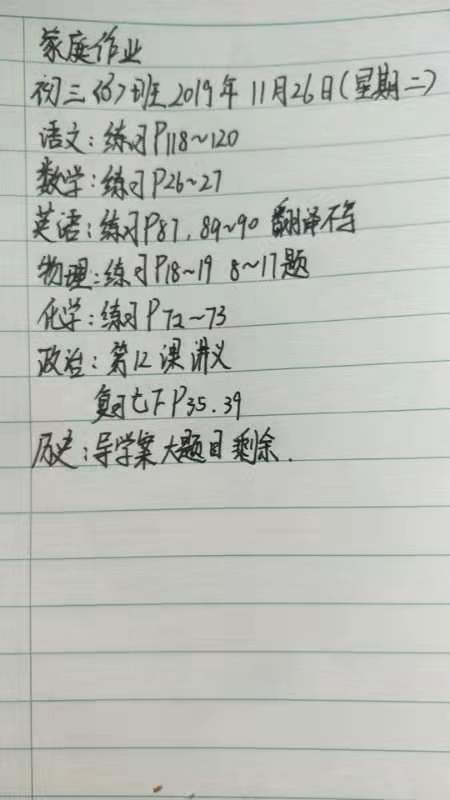 家庭作业
初三〈6〉班2019年11月26日(星期二)
语文:练习P118~120
数学:练习P26~27
英语:练习P87,89~90 翻译不写
物理:练习P18~19 8~17题
化学:练习P72~73
政治:第12课讲义
复习七下P35.39
历史:导学案大题目剩余.